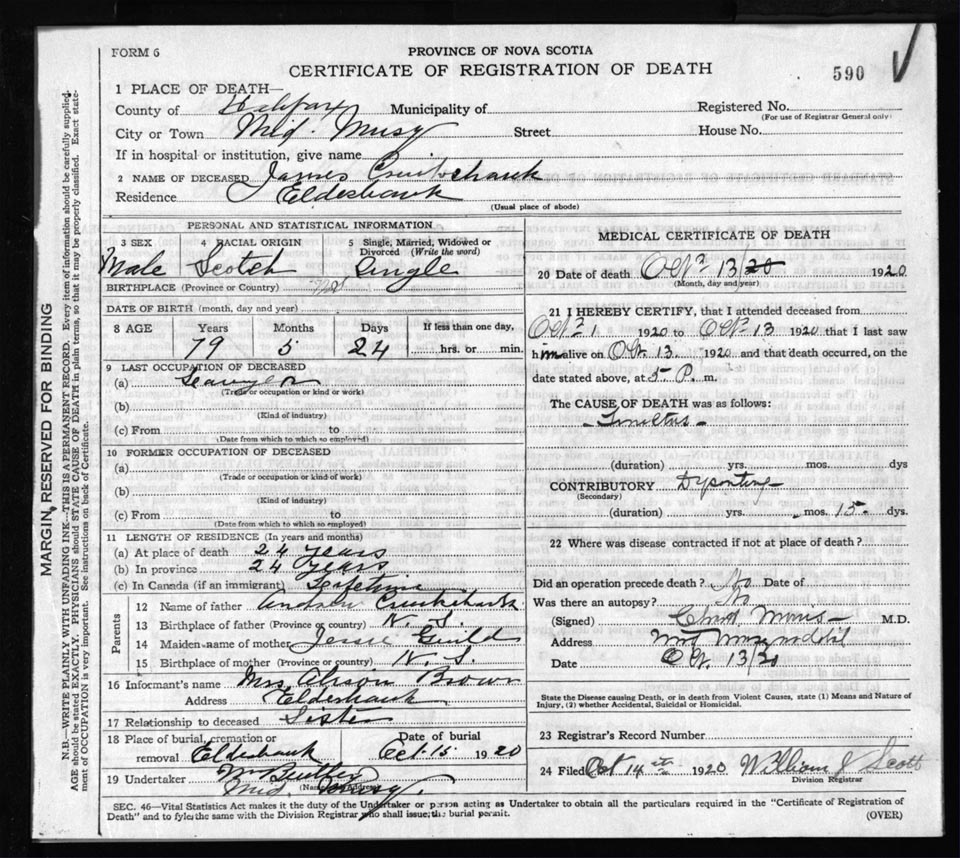 FORM 6
PROVINCE OF NOVA SCOTIA
CERTIFICATE OF REGISTRATION OF DEATH
590
1 PLACE OF DEATH—
County of Halifax Municipality of
Registered No.
(For use of Registrar General only)
City or Town Mid. Musq Street House No.
If in hospital or institution, give name
2 NAME OF DECEASED James
Residence Elderbank
(Usual place of abode)
PERSONAL AND STATISTICAL INFORMATION
3 SEX 4 RACIAL ORIGIN 5 Single, Married, Widowed or Divorced (Write the word)
Male Scotch Single
BIRTHPLACE (Province or Country)
DATE OF BIRTH (month, day and year)
8 AGE Years Months Days If less than one day,
79 5 24 hrs. or min.
9 LAST OCCUPATION OF DECEASED
(a)
(Trade or occupation or kind or work)
(b)
(Kind of industry)
(c) From to
(Date from which to which so employed)
10 FORMER OCCUPATION OF DECEASED
(a)
(Trade or occupation or kind of work)
(b)
(Kind of industry)
(c) From to
(Date from which to which so employed)
11 LENGTH OF RESIDENCE (In years and months)
(a) At place of death 24 years
(b) In province 24 years
(c) In Canada (if an immigrant)
Parents
12 Name of father Andrew
13 Birthplace of father (Province or country) N. S.
14 Maiden name of mother Jessie Guild
15 Birthplace of mother (Province or country) N. S.
16 Informant's name Mrs Alison Brown
Address Elderbank
17 Relationship to deceased Sister
18 Place of burial, cremation or removal Elderbank Date of burial Oct. 15 1920
19 Undertaker
(Name and address)
Mid. Musq.
MEDICAL CERTIFICATE OF DEATH
20 Date of death Oct 13/20 1920
(Month, day and year)
21 I HEREBY CERTIFY, that I attended deceased from
Oct 1 1920 to Oct 13 1920 that I last saw
him alive on Oct. 13 1920 and that death occurred, on the
date stated above, at 5 P. m.
The CAUSE OF DEATH was as follows:
(duration) yrs. mos. dys
CONTRIBUTORY
(Secondary)
(duration) yrs. mos. 15 dys.
22 Where was disease contracted if not at place of death?
Did an operation precede death? No Date of
Was there an autopsy? No
(Signed) M.D.
Address
Date Oct. 13/20
State the Disease causing Death, or in death from Violent Causes, state (1) Means and Nature of
Injury, (2) whether Accidental, Suicidal or Homicidal.
23 Registrar's Record Number
24 Filed Oct 14th 1920 William J Scott
Division Registrar
SEC. 46—Vital Statistics Act makes it the duty of the Undertaker or person acting as Undertaker to obtain all the particulars required in the "Certificate of Registration of
Death" and to fyle the same with the Division Registrar who shall issue the burial permit.
(OVER)
MARGIN RESERVED FOR BINDING
N.B.—WRITE PLAINLY WITH UNFADING INK—THIS IS A PERMANENT RECORD. Every item of information should be carefully supplied.
AGE should be stated EXACTLY. PHYSICIANS should STATE CAUSE OF DEATH in plain terms, so that it may be properly classified. Exact state-
ment of OCCUPATION is very important. See instructions on back of Certificate.